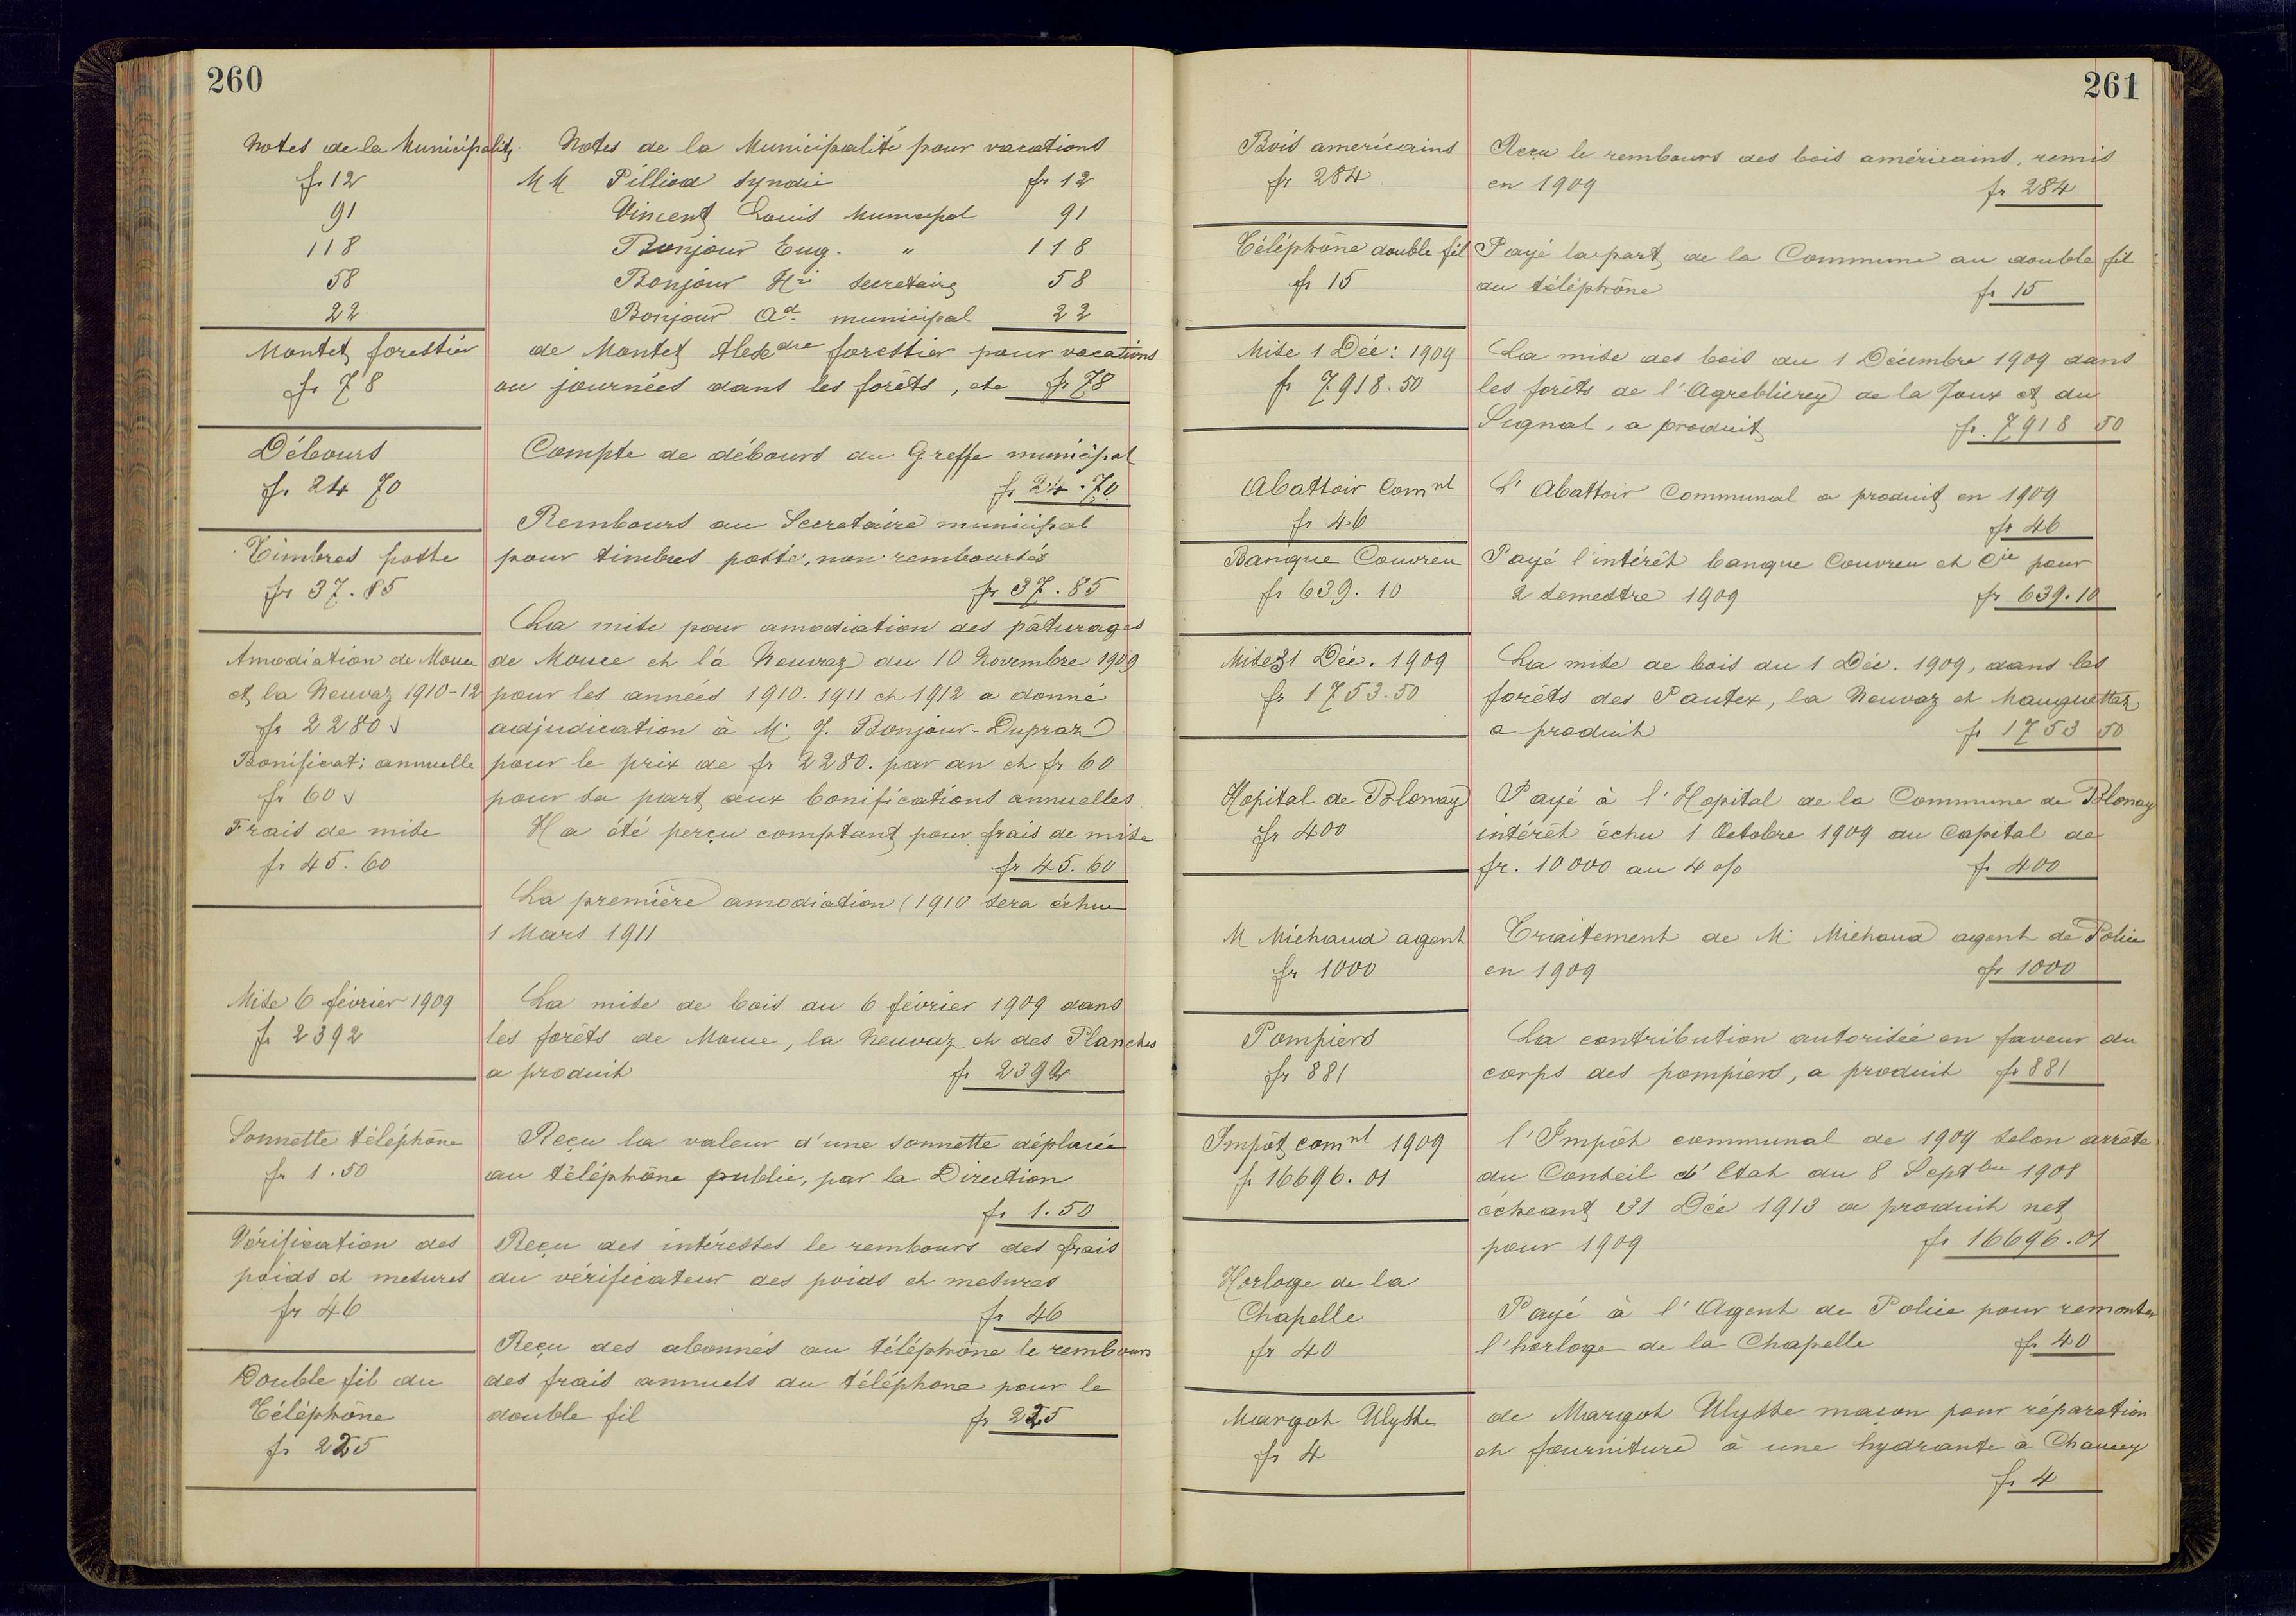 260
Notes de la Municipalité.
fr 12
91
118
58
22
Montet forestier
fr 78
Débours
fr. 24 70
Timbres poste
fr 37.85
Amodiation de Mouce
et la Neuvaz 1910-12
fr 2280
Bonificat: annuelle
fr 60
Frais de mise
fr 45.60
Mise 6 février 1909
fr 2392
Sonnette téléphone
fr 1.50
Vérification des
poids et mesures
fr 46
Double fil du
Téléphone
fr 225
Notes de la Municipalité pour vacations
MM Pilliod Syndic fr 12
Vincent Louis Municipal 91
Bonjour Eug. " 118
Bonjour Hri secretaire 58
Bonjour Ad. municipal 22
de Montet Alexdre forestier pour vacations
ou journées dans les forêts, etc fr 78
Compte de débours du Greffe municipal
fr 24.70
Rembours au Secretaire municipal
pour timbres poste, non remboursés
fr 37.85
La mise pour amodiation des pâturages
de Mouce et la Neuvaz du 10 Novembre 1909
pour les années 1910. 1911 et 1912 a donné
adjudication à M. J. Bonjour-Dupraz
pour le prix de fr 2280. par an et fr 60
pour sa part aux bonifications annuelles.
Il a été perçu comptant pour frais de mise
fr 45.60
La première amodiation (1910 sera échue
1 Mars 1911
La mise de bois du 6 février 1909 dans
les forêts de Mouce, la Neuvaz et des Planches
a produit fr 2392
Reçu la valeur d'une sonnette déplacée
au téléphone public, par la Direction
fr 1.50
Reçu des intéressés le rembours des frais
du vérificateur des poids et mesures
fr 46
Reçu des abonnés au téléphone le rembours
des frais annuels du téléphone pour le
double fil fr 225
261
Bois américains
fr 284
Téléphone double fil
fr 15
Mise 1 Déc: 1909
fr 7918.50
Abattoir Comnl
fr 46
Banque Couvreu
fr 639.10
Mise 1 Déc. 1909
fr 1753.50
Hopital de Blonay
fr 400
M Michaud agent
fr 1000
Pompiers
fr 881
Impôt comnl 1909
fr 16696.01
Horloge de la
Chapelle
fr 40
Margot Ulysse
fr 4
Reçu le rembours des bois américains, remis
en 1909 fr 284
Payé la part de la Commune au double fil
du téléphone fr 15
La mise des bois du 1 Décembre 1909 dans
les forêts de l'Agreblierey de la Joux et du
Signal, a produit fr. 7918 50
L'Abattoir Communal a produit en 1909
fr 46
Payé l'intérêt banque Couvreu et Cie pour
2 semestre 1909 fr 639.10
La mise de bois du 1 Déc. 1909, dans les
forêts des Pautex, la Neuvaz et Manguettaz
a produit fr 1753 50
Payé à l'Hopital de la Commune de Blonay
intérêt échu 1 Octobre 1909 du Capital de
fr. 10000 au 4 o/o fr 400
Traitement de M. Michaud agent de Police
en 1909 fr 1000
La contribution autorisée en faveur du
corps des pompiers, a produit fr 881
l'Impôt communal de 1909 selon arrêté
du Conseil d'Etat du 8 Septbre 1908
échéant 31 Déc 1913 a produit net
pour 1909 fr 16696.01
Payé à l'Agent de Police pour remonter
l'horloge de la Chapelle fr 40
de Margot Ulysse maçon pour réparation
et fourniture à une hydrante à Chaucey
fr 4